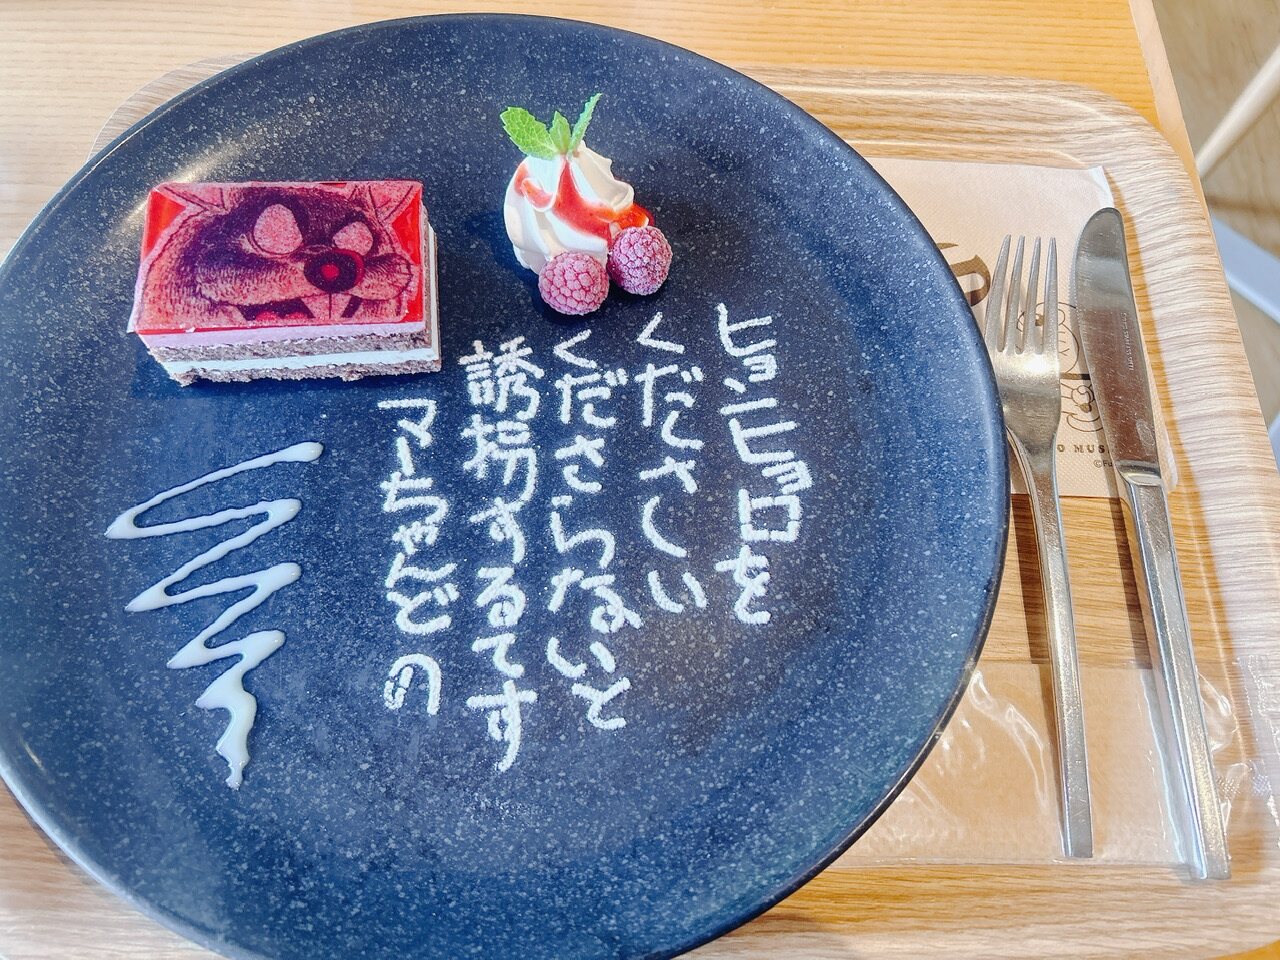 ヒョンヒョロを
くださしい
くださらないと
誘拐するてす
マーちゃんどの
O MUS
©Fu